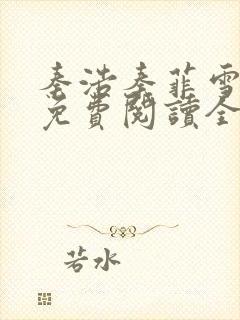 秦浩秦菲雪
免費閱讀全
若水